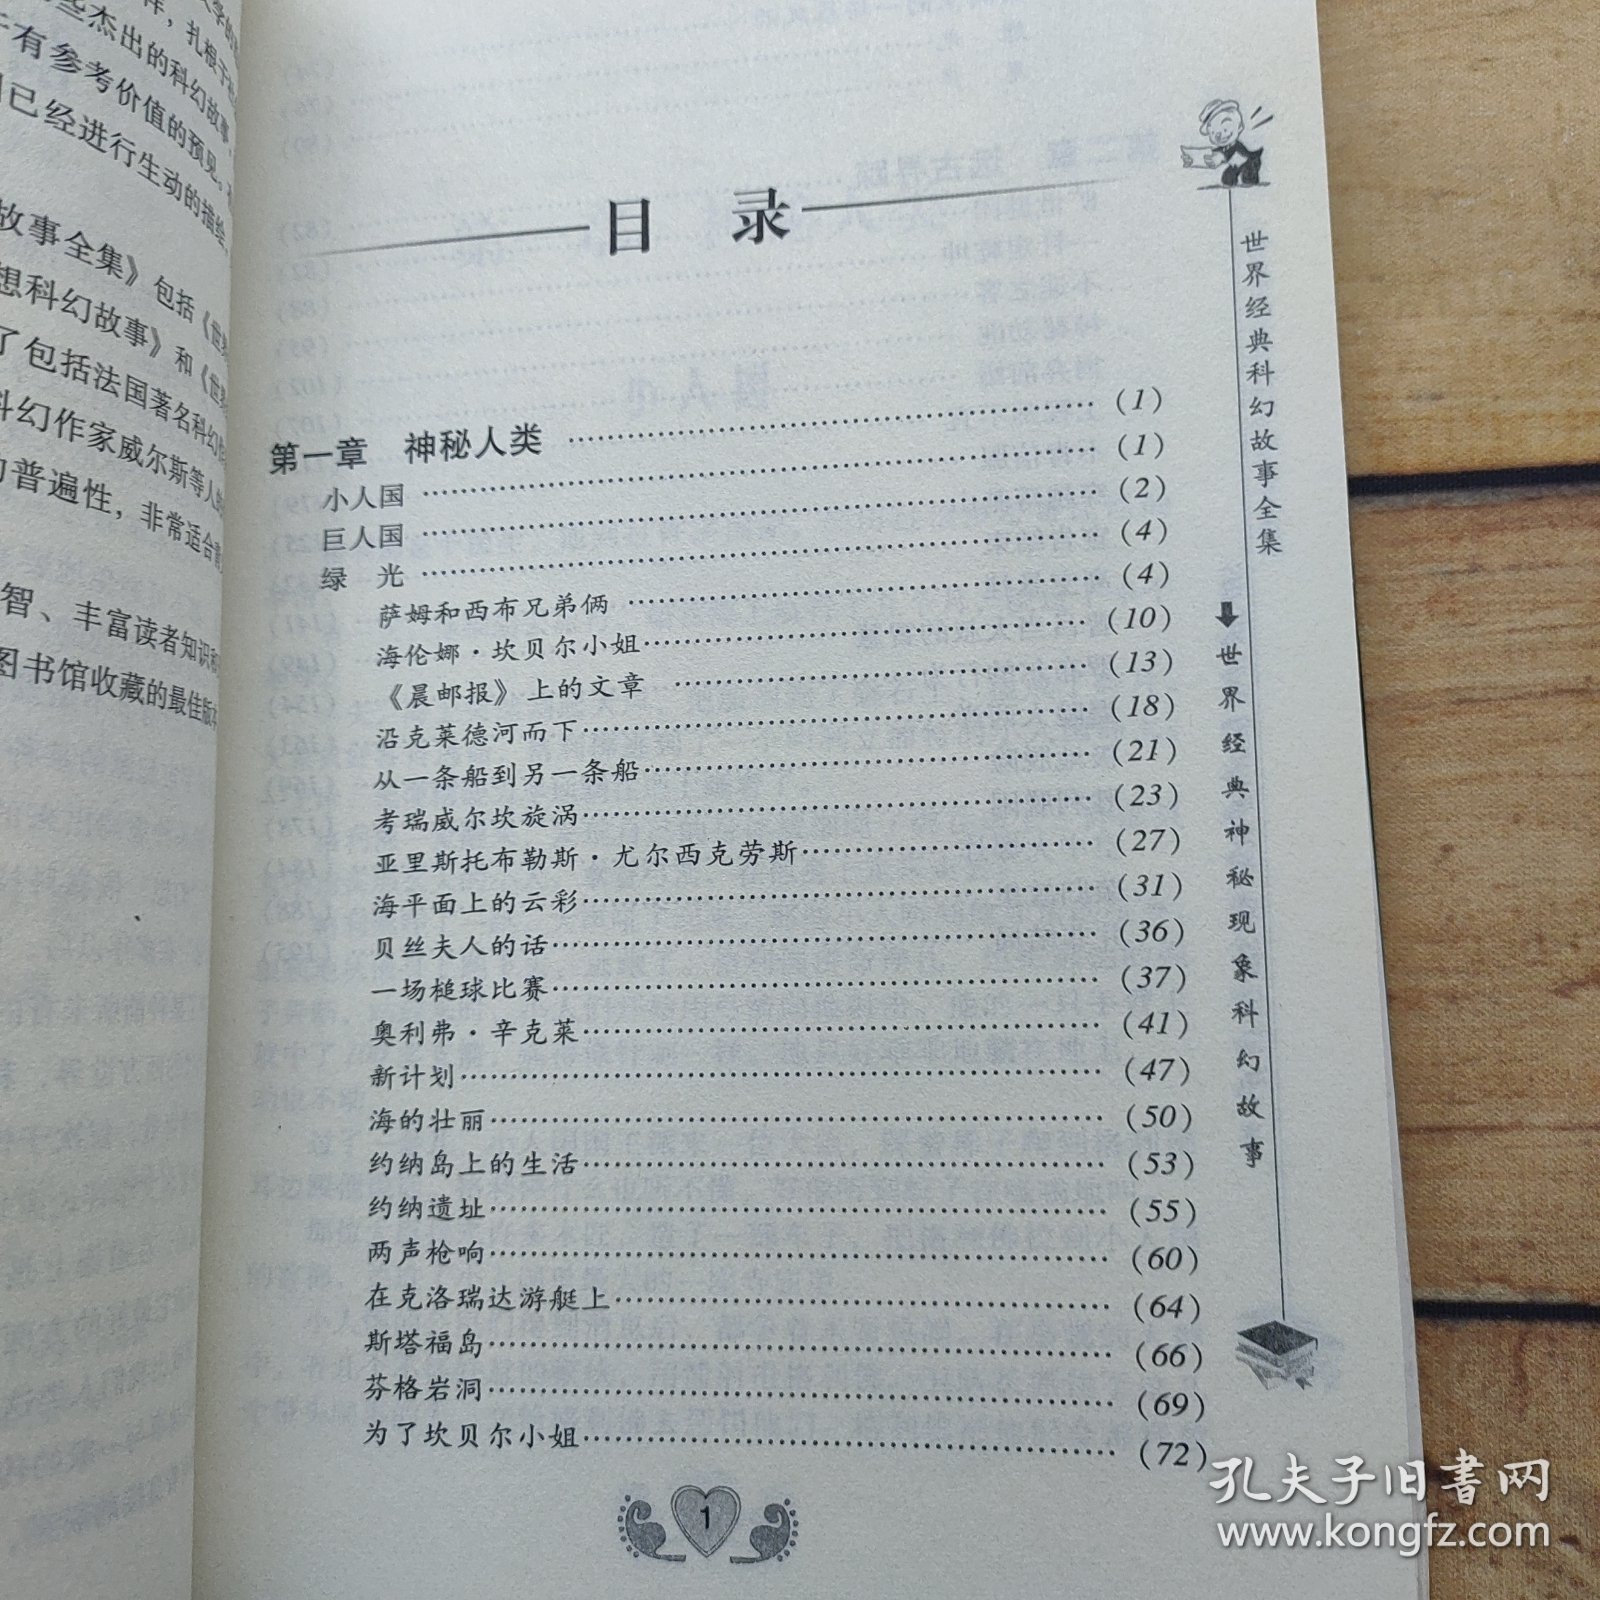 些杰出的科幻故事，
有参考价值的预见。
已经进行生动的描绘，
故事全集》包括《世
想科幻故事》和《世
了包括法国著名科幻
科幻作家威尔斯等人
普遍性，非常适合
智、丰富读者知识和
图书馆收藏的最佳版本
目 录
第一章 神秘人类 …… (1)
小人国 …… (1)
巨人国 …… (2)
绿 光 …… (4)
萨姆和西布兄弟俩 …… (4)
海伦娜·坎贝尔小姐 …… (10)
《晨邮报》上的文章 …… (13)
沿克莱德河而下 …… (18)
从一条船到另一条船 …… (21)
考瑞威尔坎旋涡 …… (23)
亚里斯托布勒斯·尤尔西克劳斯 …… (27)
海平面上的云彩 …… (31)
贝丝夫人的话 …… (36)
一场槌球比赛 …… (37)
奥利弗·辛克莱 …… (41)
新计划 …… (47)
海的壮丽 …… (50)
约纳岛上的生活 …… (53)
约纳遗址 …… (55)
两声枪响 …… (60)
在克洛瑞达游艇上 …… (64)
斯塔福岛 …… (66)
芬格岩洞 …… (69)
为了坎贝尔小姐 …… (72)
1
世界经典科幻故事全集
世界经典神秘现象科幻故事
孔夫子旧书网
www.kongfz.com